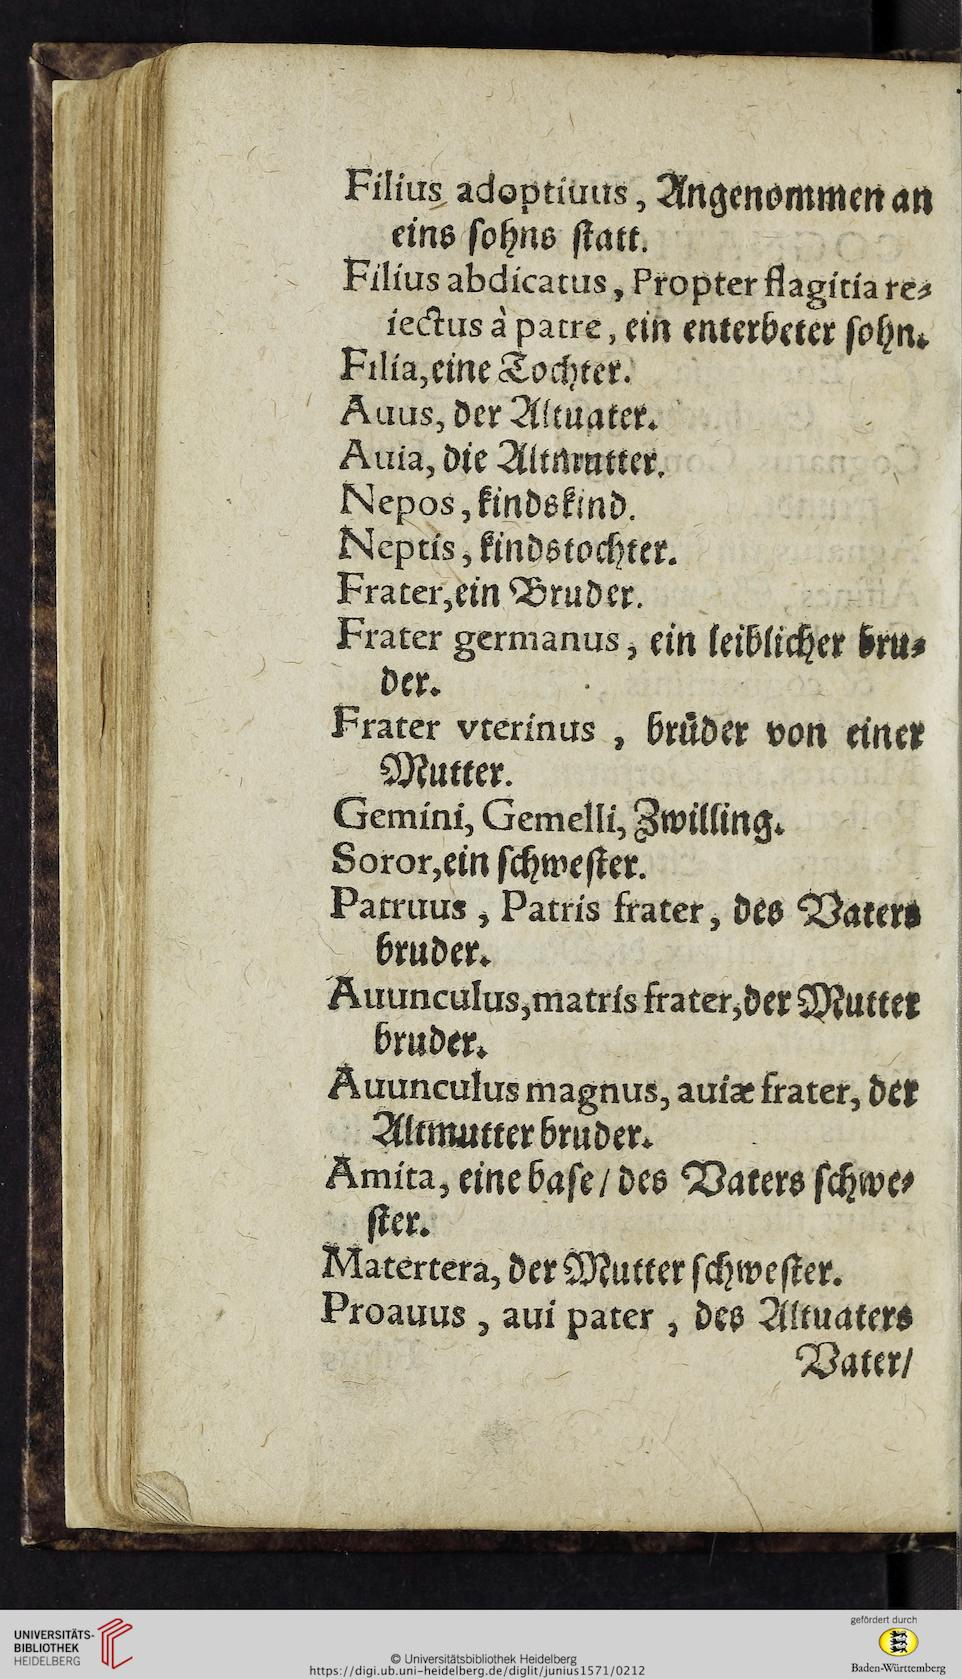 Filius adoptiuus, Angenommen an
eins sohns statt.
Filius abdicatus, Propter flagitia re⸗
iectus à patre, ein enterbeter sohn.
Filia, eine Tochter.
Auus, der Altuater.
Auia, die Altmutter.
Nepos, kindskind.
Neptis, kindstochter.
Frater, ein Bruder.
Frater germanus, ein leiblicher bru⸗
der.
Frater vterinus, brůder von einer
Mutter.
Gemini, Gemelli, Zwilling.
Soror, ein schwester.
Patruus, Patris frater, des Vaters
bruder.
Auunculus, matris frater, der Mutter
bruder.
Auunculus magnus, auiæ frater, der
Altmutter bruder.
Amita, eine base / des Vaters schwe⸗
ster.
Matertera, der Mutter schwester.
Proauus, aui pater, des Altuaters
Vater/
UNIVERSITÄTS-
BIBLIOTHEK
HEIDELBERG
© Universitätsbibliothek Heidelberg
https://digi.ub.uni-heidelberg.de/diglit/junius1571/0212
gefördert durch
Baden-Württemberg